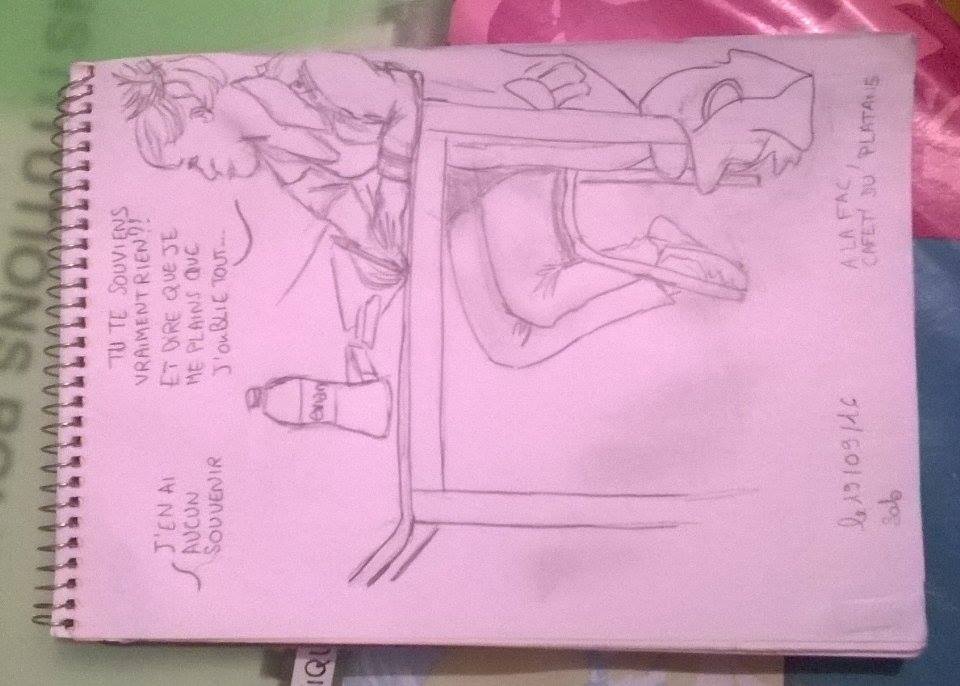 J'EN AI
AUCUN
SOUVENIR
TU TE SOUVIENS
VRAIMENT RIEN?!
ET DIRE QUE JE
ME PLAINS QUE
J'OUBLIE TOUT....
evian
le 19/09/16
Sab
A LA FAC,
CAFET' DU PLATANE
IQU